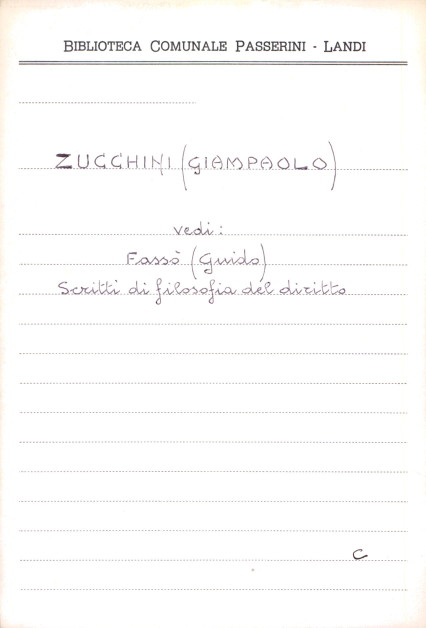 BIBLIOTECA COMUNALE PASSERINI - LANDI
ZUCCHINI (GIAMPAOLO)
vedi:
Fassò (Guido)
Scritti di filosofia del diritto
C